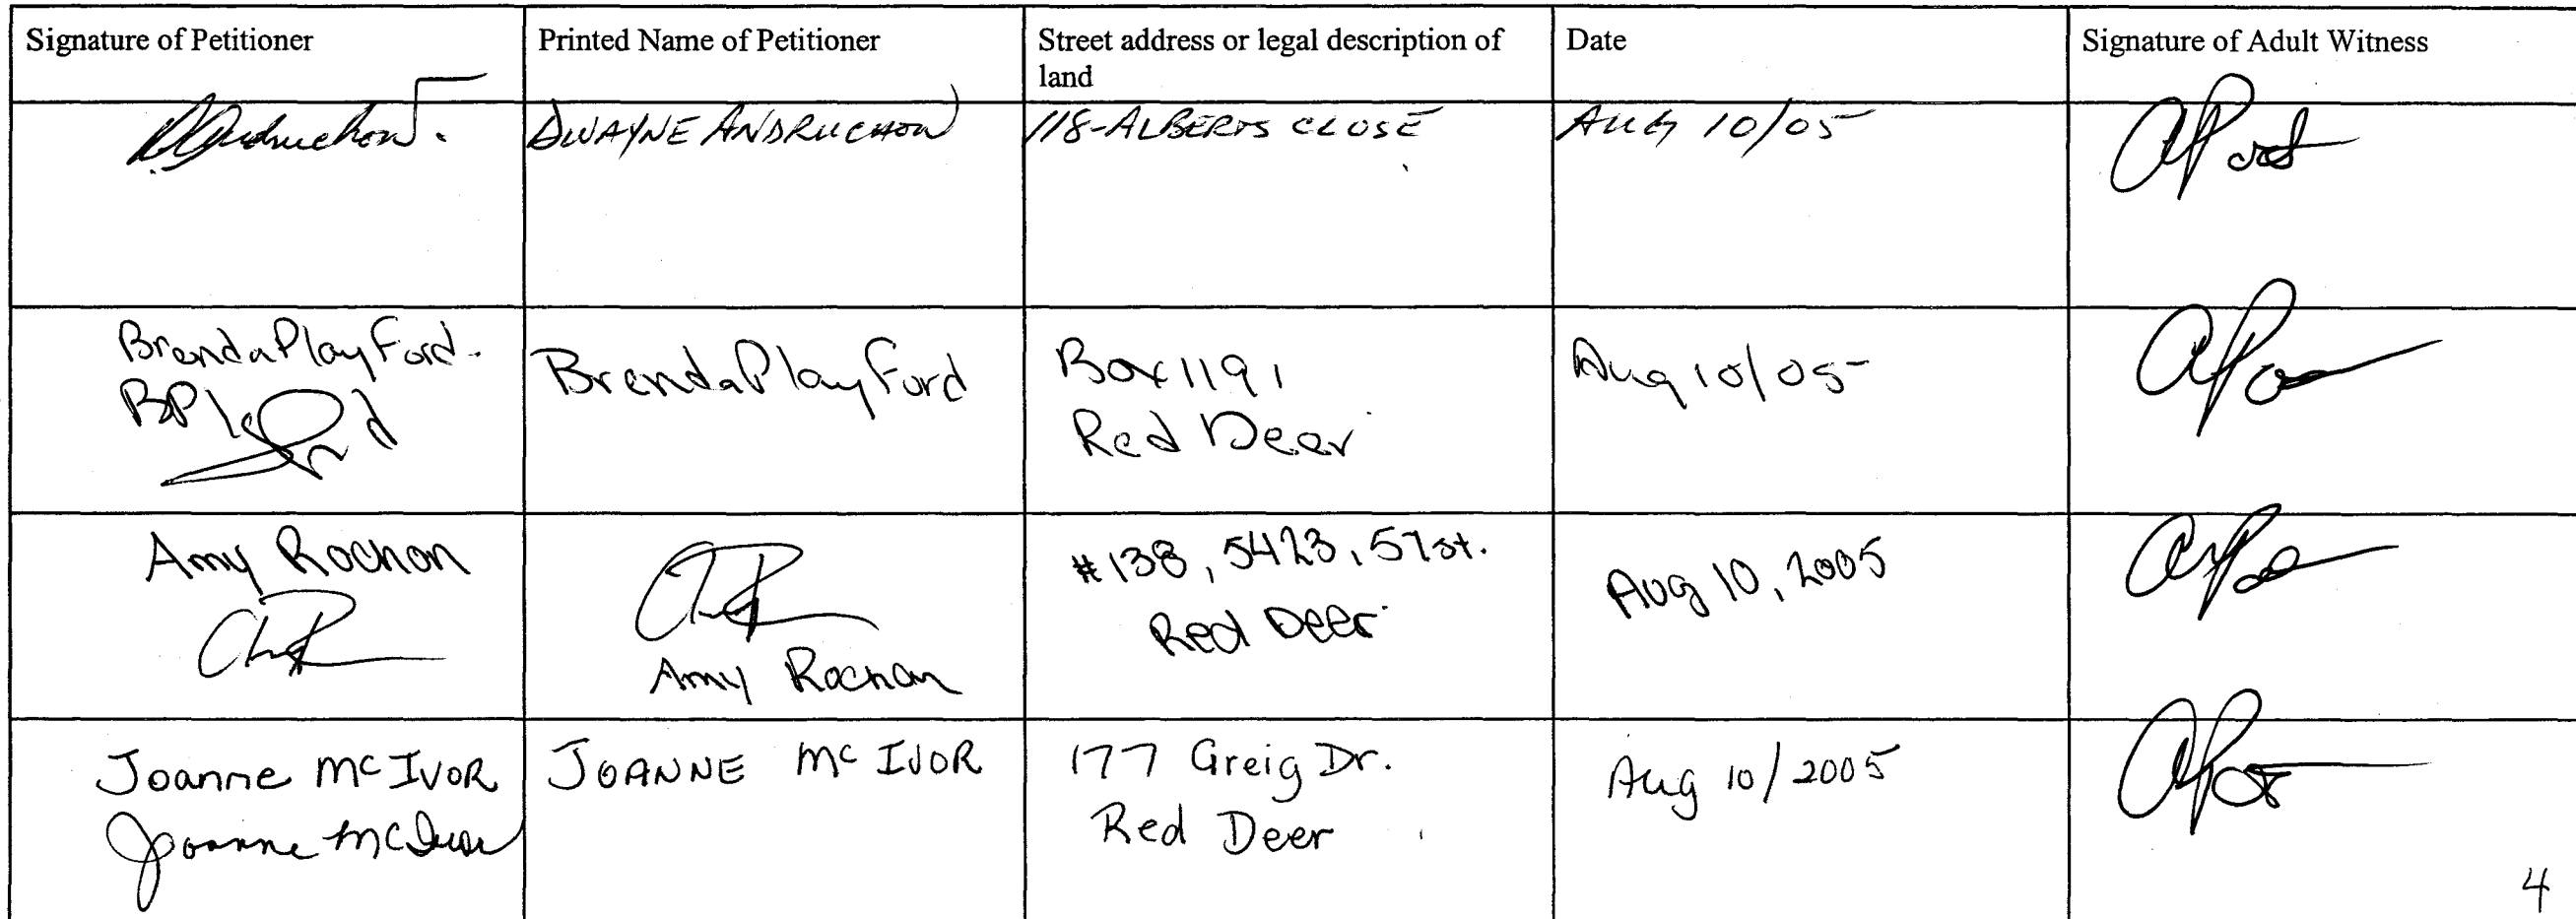 Signature of Petitioner
Printed Name of Petitioner
Street address or legal description of
land
Date
Signature of Adult Witness
DAndruchow.
DWAYNE ANDRUCHOW
118-ALBERTS CLOSE
AUG 10/05
Brenda PlayFord.
Brenda PlayFord
Box 1191
Red Deer
Aug 10/05
Amy Rochon
Amy Rochon
#138, 5423, 57st.
Red Deer
Aug 10, 2005
Joanne McIVOR
Joanne McIvor
JOANNE McIVOR
177 Greig Dr.
Red Deer
Aug 10/2005
4